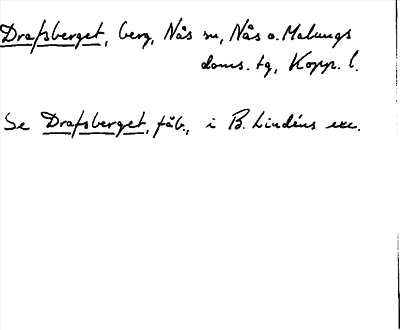 Drafsberget, berg, Nås sn, Nås o. Malungs
doms. tg, Kopp. l.
Se Drafsberget, fäb., i B. Lindéns exc.